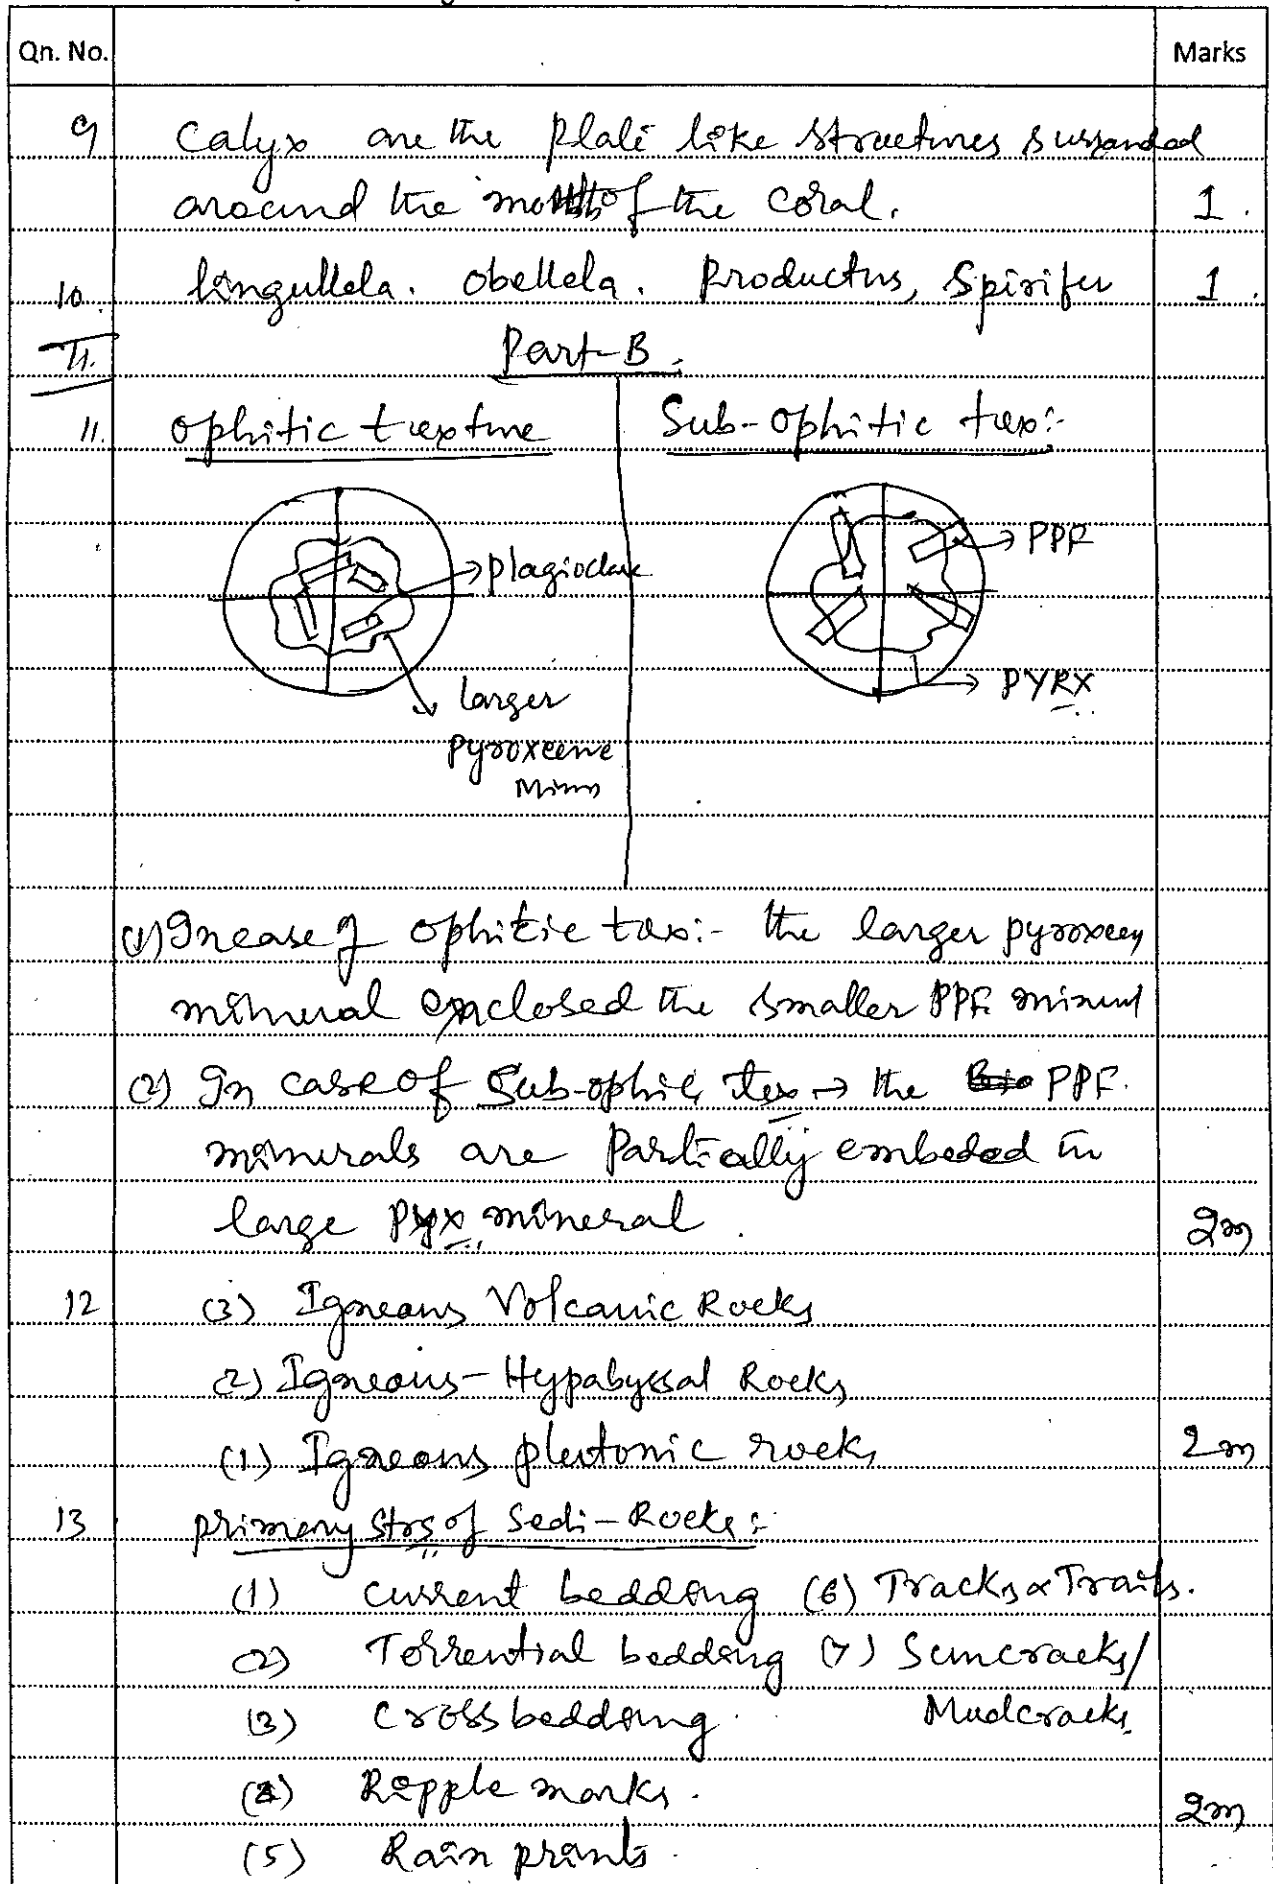 Qn. No. Marks
9 Calyx are the plate like structures surranded
around the mouth of the coral. 1.
10. lingullela. obellela. Productus, Spirifer 1.
II. Part-B.
11. Ophitic texture Sub-ophitic tex:-
PPF
plagioclase
PYRX
larger
pyroxcene
(1) Incase of ophitic tex:- the larger pyroxcen
mineral enclosed the smaller PPF. mineral
(2) In case of Sub-ophitic tex → the PPF.
minerals are Partially embeded in
large Pyx mineral. 2m
12 (3) Igneous Volcanic Rocks
(2) Igneous-Hypabyssal Rocks
(1) Igneous plutonic rocks 2m
13 primary strs of Sedi-Rocks:-
(1) current bedding (6) Tracks & Trails.
(2) Torrential bedding (7) Suncracks/
(3) Cross bedding. Mudcracks
(4) Ripple marks. 2m
(5) Rain prints.